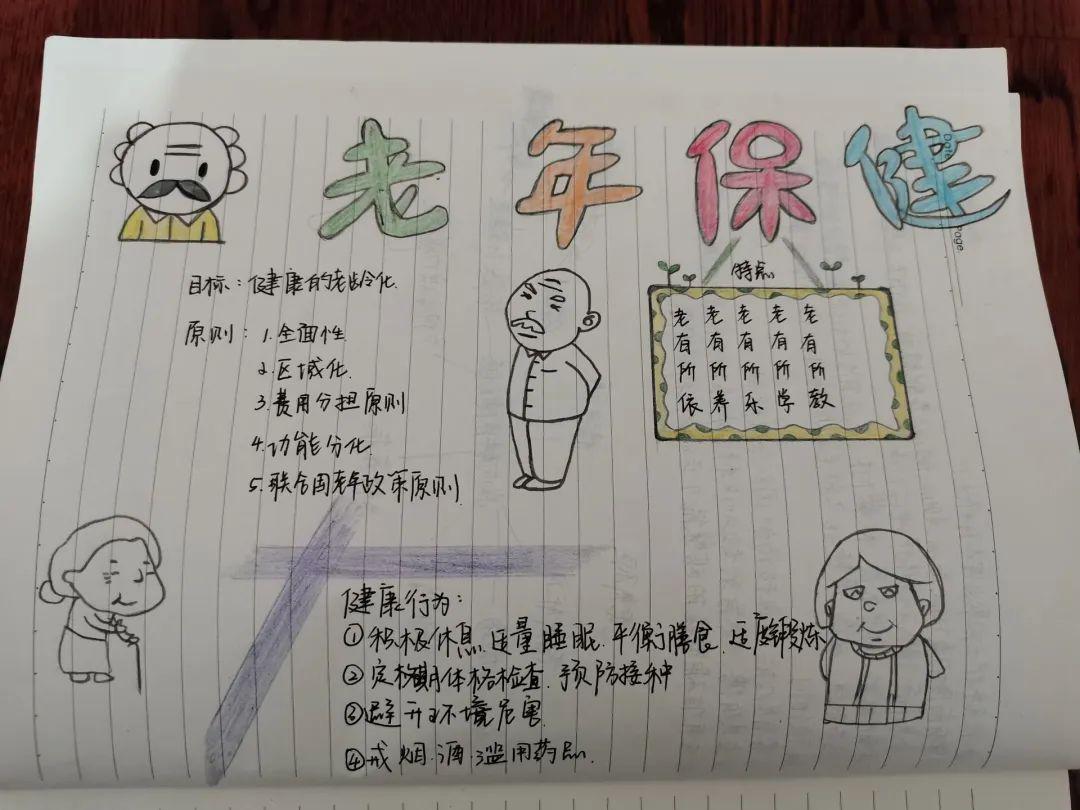 老年保健
Date
Page
目标：健康的老龄化.
原则：1.全面性
2.区域化.
3.费用分担原则
4.功能分化.
5.联合国老年政策原则
特点
老有所依
老有所养
老有所乐
老有所学
老有所教
健康行为：
①积极休息.适量睡眠.平衡膳食.适度锻炼
②定期体格检查.预防接种
③避开环境危害
④戒烟.酒.滥用药品.